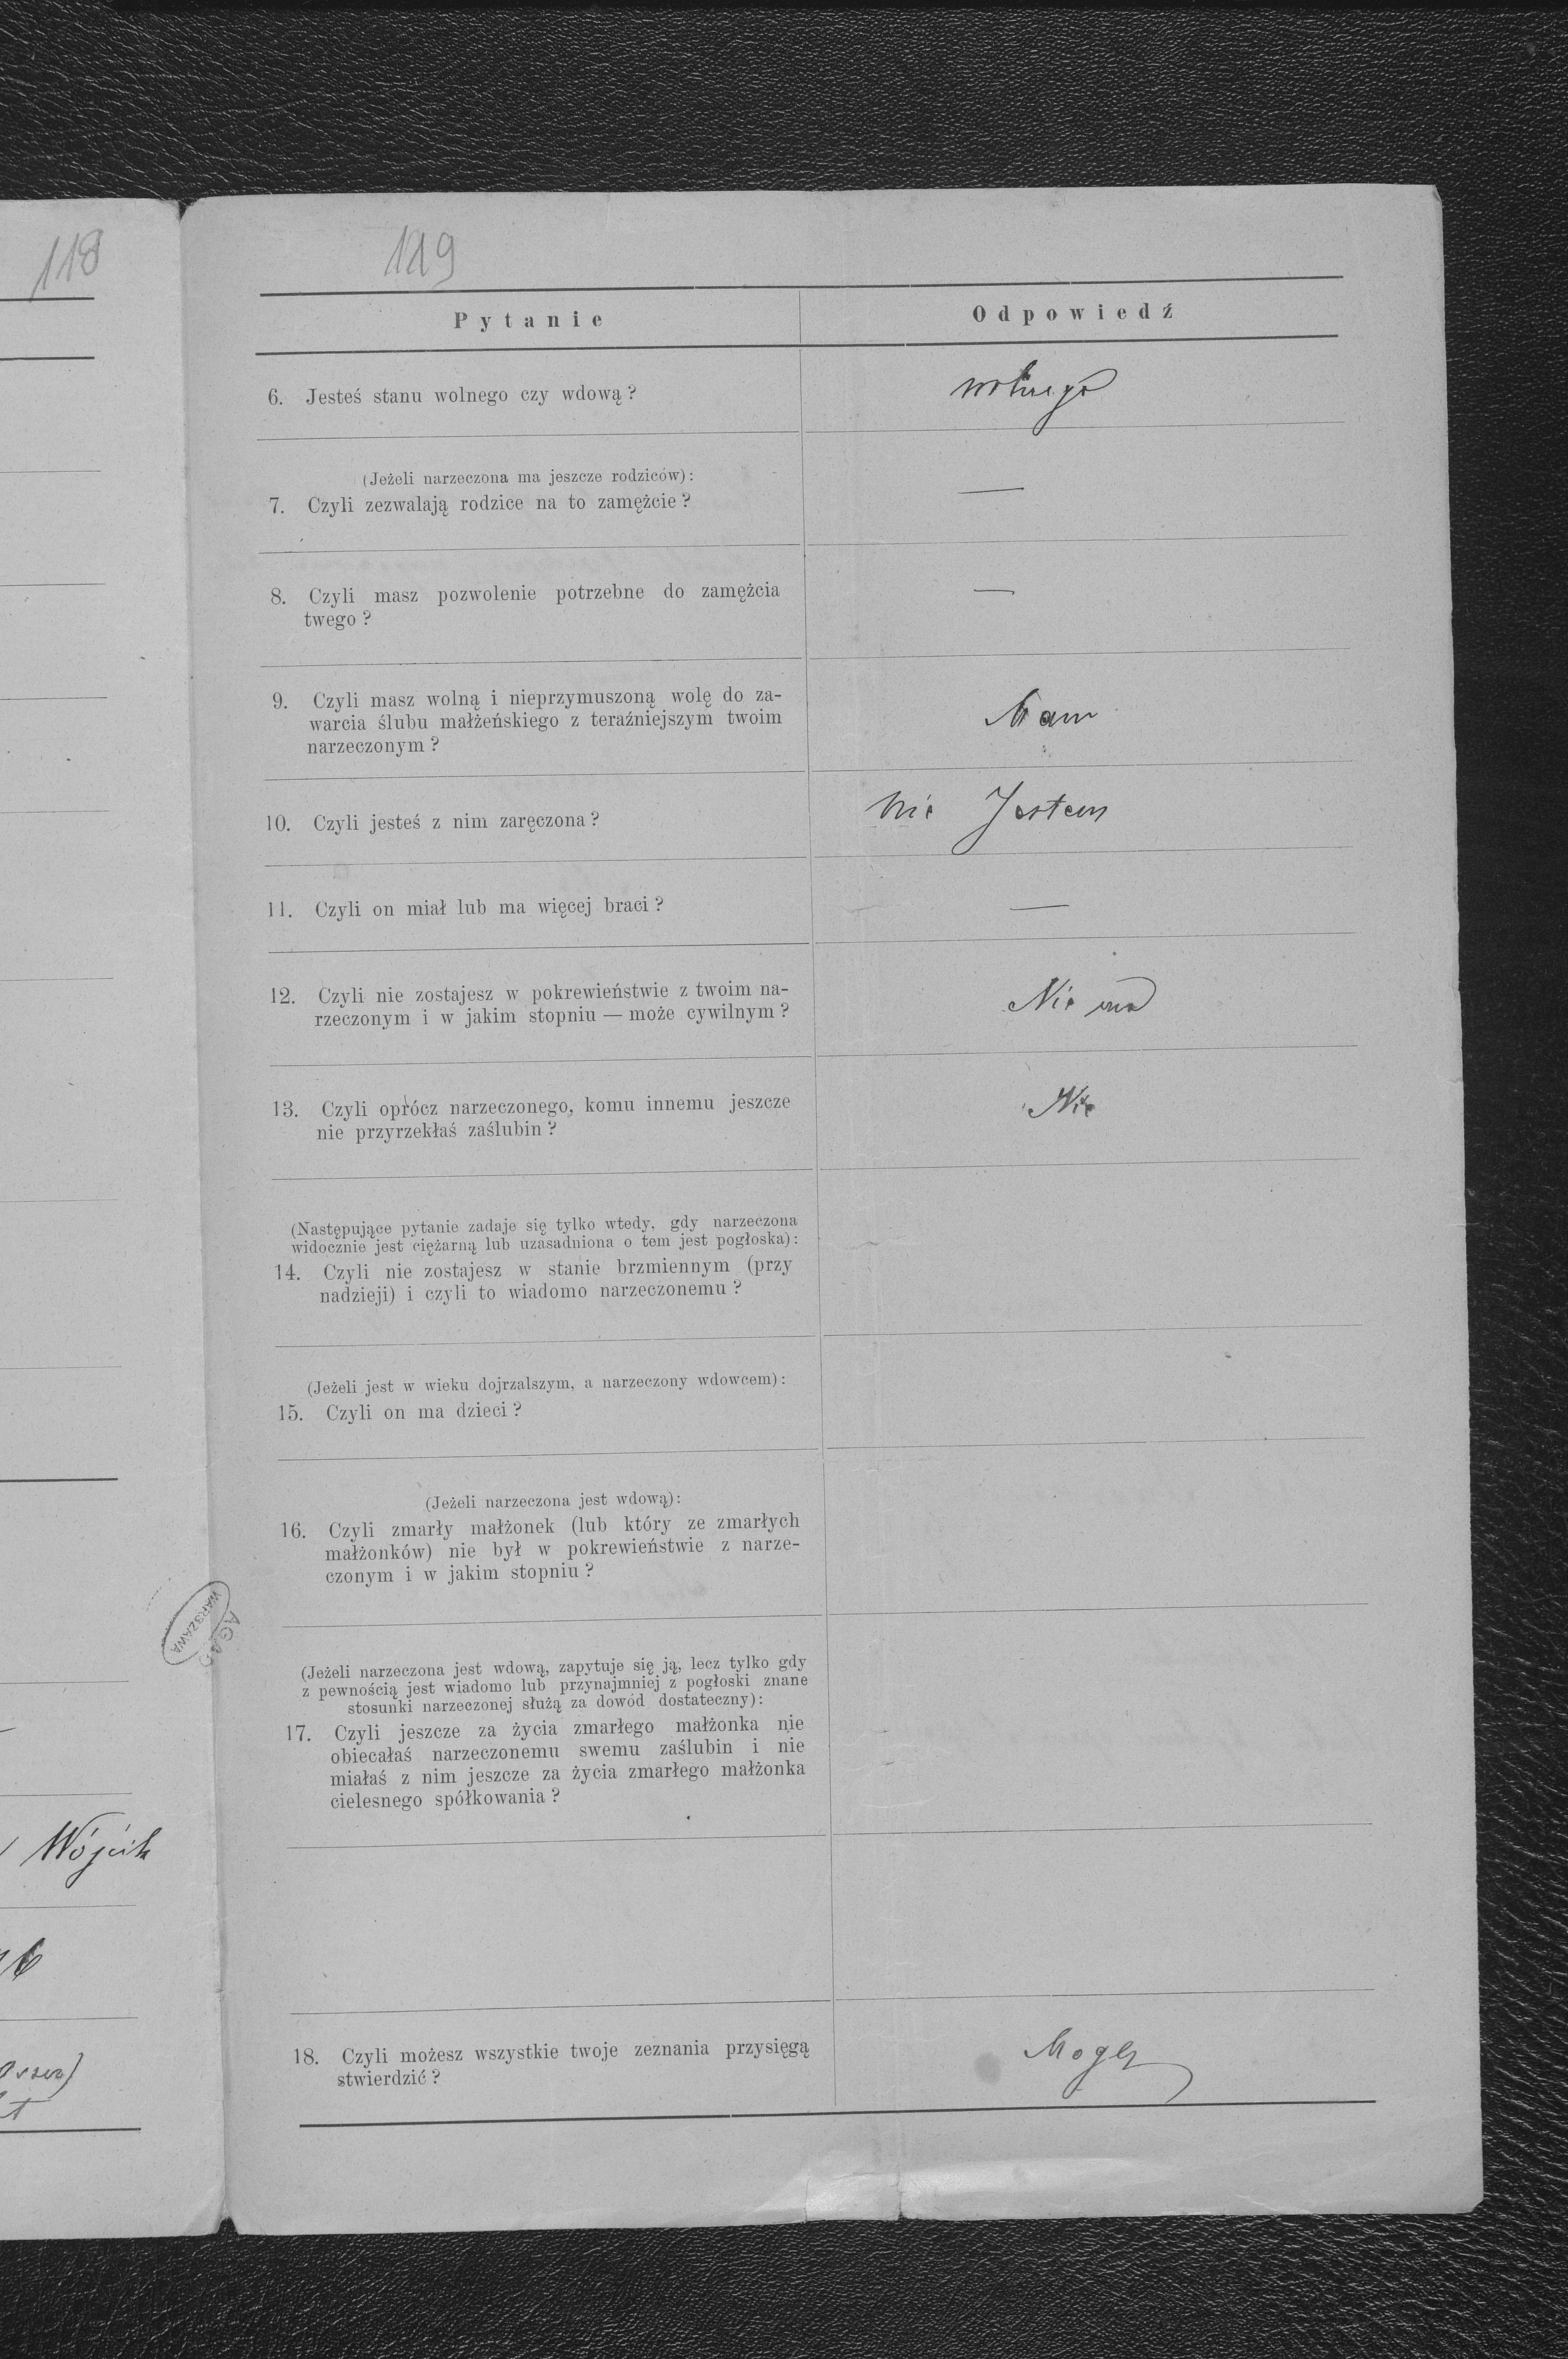 118
119
Pytanie Odpowiedź
6. Jesteś stanu wolnego czy wdową? wolnego
(Jeżeli narzeczona ma jeszcze rodziców):
7. Czyli zezwalają rodzice na to zamężcie? —
8. Czyli masz pozwolenie potrzebne do zamężcia —
twego?
9. Czyli masz wolną i nieprzymuszoną wolę do za-
warcia ślubu małżeńskiego z teraźniejszym twoim Mam
narzeczonym?
10. Czyli jesteś z nim zaręczona? Nie Jestem
11. Czyli on miał lub ma więcej braci? —
12. Czyli nie zostajesz w pokrewieństwie z twoim na- Nie ma
rzeczonym i w jakim stopniu — może cywilnym?
13. Czyli oprócz narzeczonego, komu innemu jeszcze Nie
nie przyrzekłaś zaślubin?
(Następujące pytanie zadaje się tylko wtedy, gdy narzeczona
widocznie jest ciężarną lub uzasadniona o tem jest pogłoska):
14. Czyli nie zostajesz w stanie brzmiennym (przy
nadzieji) i czyli to wiadomo narzeczonemu?
(Jeżeli jest w wieku dojrzalszym, a narzeczony wdowcem):
15. Czyli on ma dzieci?
(Jeżeli narzeczona jest wdową):
16. Czyli zmarły małżonek (lub który ze zmarłych
małżonków) nie był w pokrewieństwie z narze-
czonym i w jakim stopniu?
AGAD
WARSZAWA
(Jeżeli narzeczona jest wdową, zapytuje się ją, lecz tylko gdy
z pewnością jest wiadomo lub przynajmniej z pogłoski znane
stosunki narzeczonej służą za dowód dostateczny):
17. Czyli jeszcze za życia zmarłego małżonka nie
obiecałaś narzeczonemu swemu zaślubin i nie
miałaś z nim jeszcze za życia zmarłego małżonka
cielesnego spółkowania?
Wójcik
18. Czyli możesz wszystkie twoje zeznania przysięgą Mogę
stwierdzić?